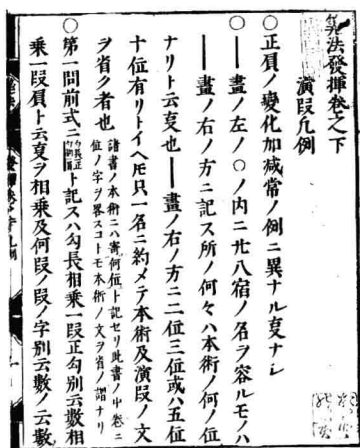 算法發揮卷之下
演段凡例
○正負ノ變化加減常ノ例ニ異ナル叓ナシ
○━畫ノ左ノ○ノ内ニ廿八宿ノ名ヲ容ルモノハ
━畫ノ右ノ方ニ記ス所ノ何々ハ本術ノ何ノ位
ナリト云叓也━畫ノ右ノ方ニ二位三位或ハ五位
十位有リトイヘ𪜈只一名ニ約メテ本術及演段ノ文
ヲ省ク者也
諸書ノ本術ニハ寄何位ト記セリ此書ノ中卷ニ
位ノ字ヲ畧スコトモ本術ノ文ヲ省ノ謂ナリ
○第一問前式ニ
ト記スハ勾長相乗一段正勾別云數相
乗一段負ト云叓ヲ相乗及何段ノ段ノ字別云數ノ云數